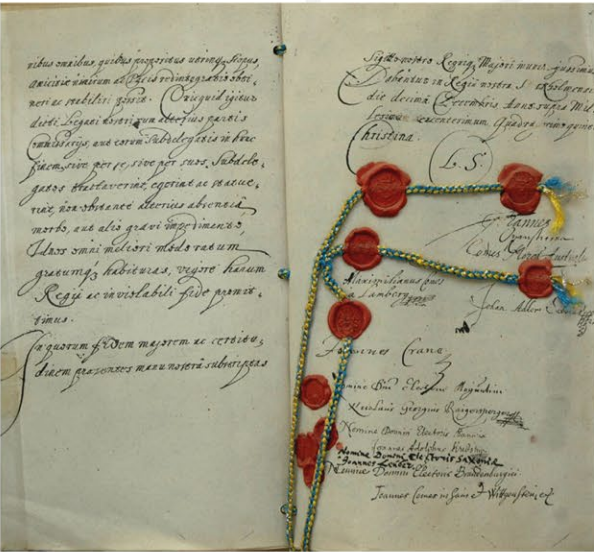 nibus omnibus, quibus propositus utrinq; scopus,
amicitiæ nimirum ac Pacis redintegratio obti-
neri ac stabiliri possit. Quicquid igitur
dicti Legati nostri cum alterius partis
Commissarijs, aut eorum Subdelegatis in hunc
finem, sive per se, sive per suos Subdele-
gatos tractaverint, egerint ac statue-
rint, non obstante alterius absentia
morbo, aut alio gravi impedimento,
Id nos omni meliori modo ratum
gratumq; habituras, vigore harum
Regij ac inviolabili fide promit-
timus.
In quorum fidem majorem ac certitu-
dinem præsentes manu nostrâ subscriptas
Sigillo nostro Regio Majori
Dabantur in Regiâ nostrâ
die decima Decembris, Anno supra Mil-
lesimum Quadragesimo quinto
Christina.
L. S.
Maximilianus
a Lamberg
Johan Adler
Joannes Crane
Nomine Dni Electoris Moguntini
Nicolaus Georgius Raigersperger
Nomine Domini Electoris
Joannes Adolphus
Nomine Domini Electoris Saxoniæ
Joannes Leuber
Nomine Domini Electoris Brandenburgici
Joannes Comes in Sain et Wittgenstein